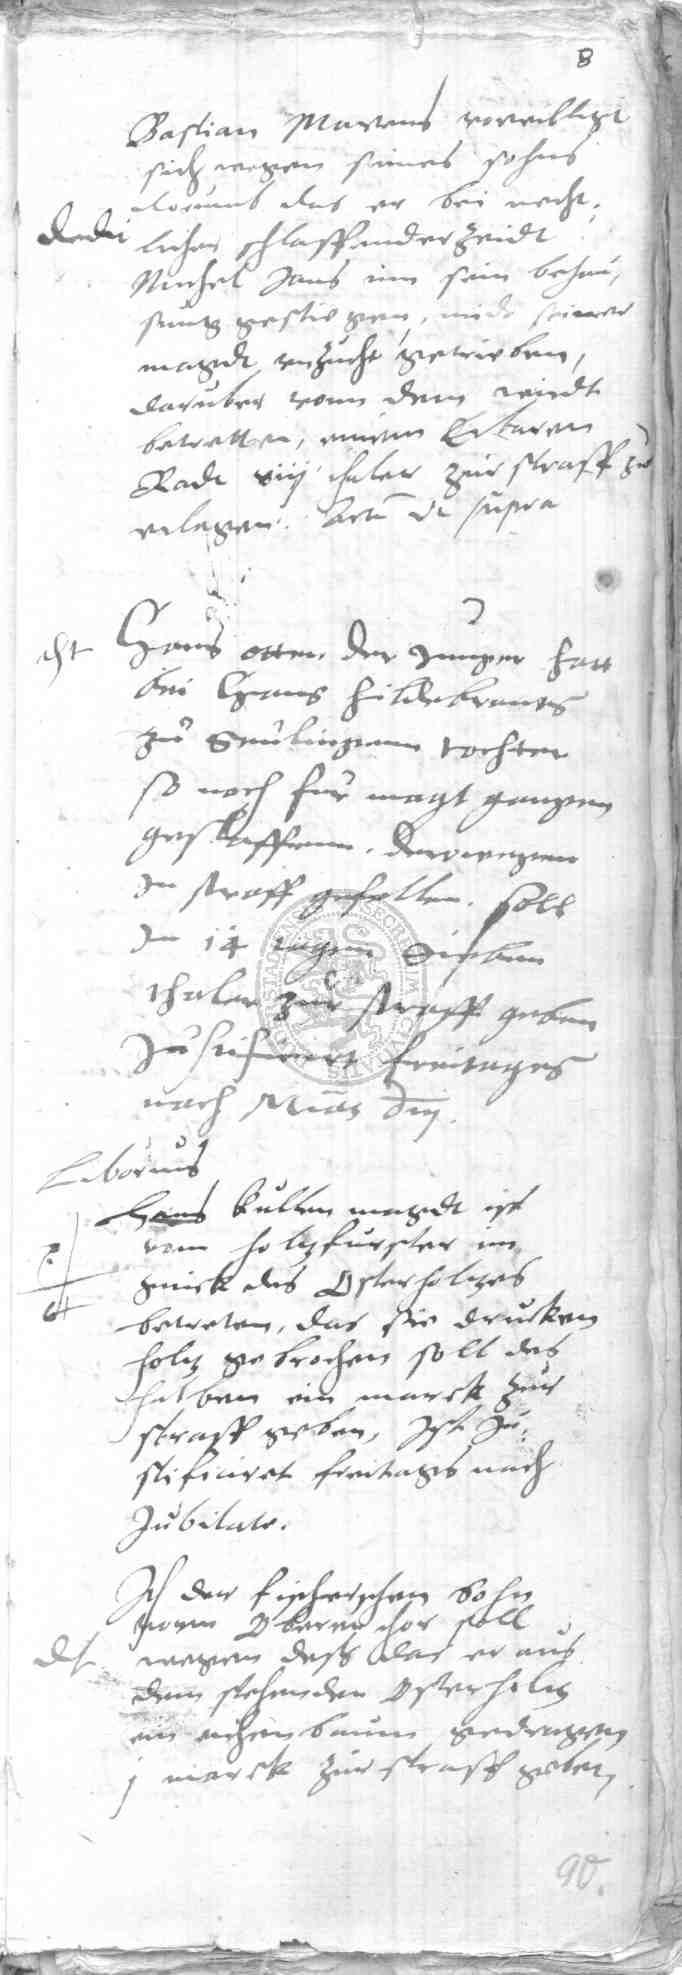 8
Bastian Mavens vorwilligt
sich wegen seines sohns
das er bei necht,
dedit
licher schlaffender zeidt
Michel Jans inn sein behau,
sung gestiegen, mit seiner
magdt unzucht getrieben,
daruber vonn dem
betretten, einem Erbaren
Radt viij thaler zur straff zu
erlegen. Actum ut supra
dt
Hans otten der Junger hatt
bei Hans Hildebrants
zu Seulingenn tochter
so noch fur magt gangen
geschlaffenn. derwegenn
In straff gefallen. soll
In 14 tagen Sieben
thaler zur straff geben
Justificirt freitages
nach
Liborius
Hans Kullen magdt ist
vom holtzfurster im
des Osterholtzes
betreten, das sie drucken
holtz gebrochen soll des
halben ein marck zur
straff geben, Ist Ju,
stificiret freitags nach
Jubilate.
der fischerschen sohn
vorm Oberen thor soll
dt
wegen deß das er aus
dem stehenden Osterholtz
ein eichenbaum gedragen
j marck zur straff geben
90.